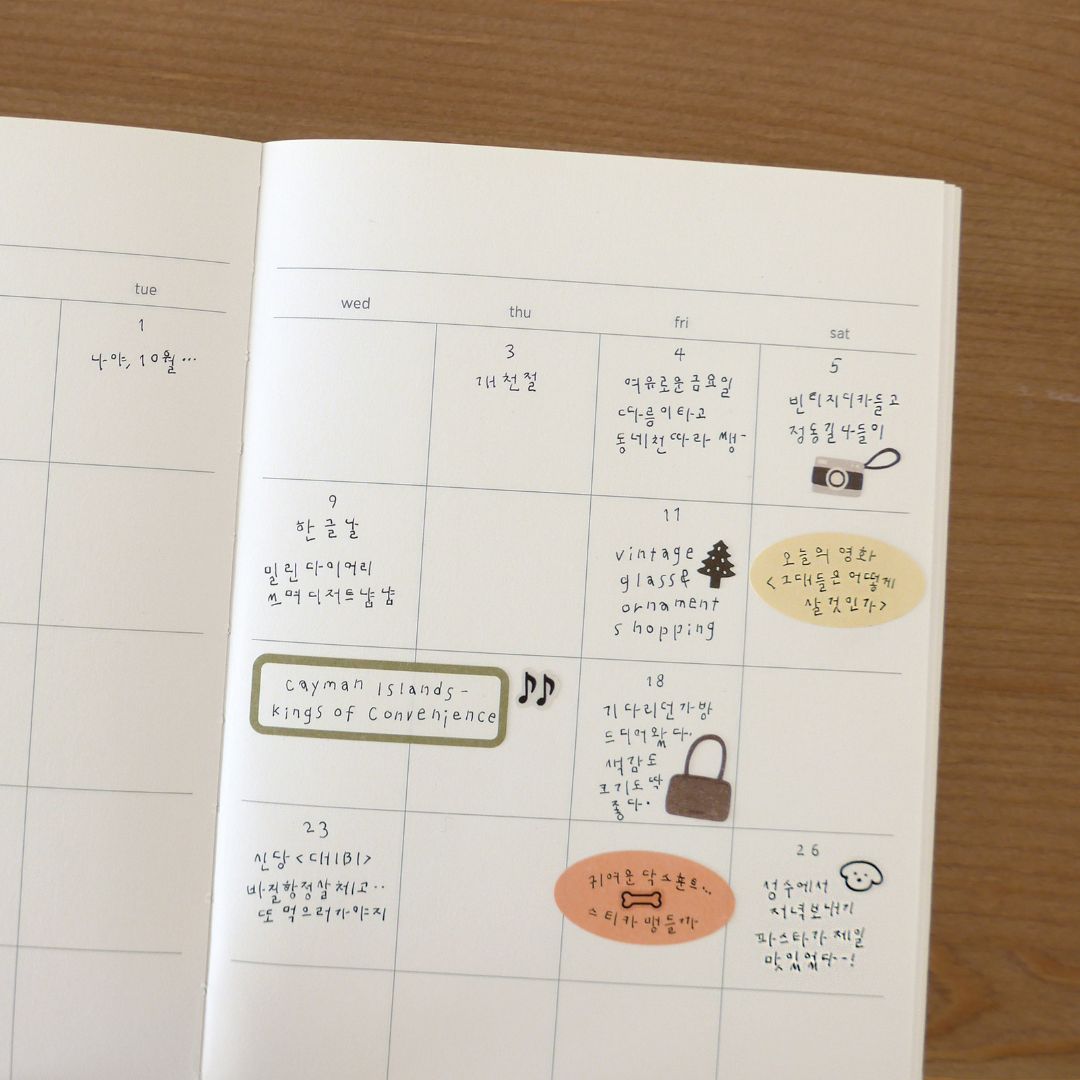 tue
wed
thu
fri
sat
1
나야, 10월...
3
개천절
4
여유로운금요일
따릉이타고
동네천따라 쌩-
5
빈티지디카들고
정동길나들이
9
한글날
밀린 다이어리
쓰며 디저트냠냠
11
vintage
glass&
ornament
shopping
오늘의 영화
<그대들은 어떻게
살 것인가>
Cayman Islands-
kings of Convenience
18
기다리던가방
드디어왔다.
색감도
크기도 딱
좋다.
23
신당 <대비>
바질항정살 최고..
또 먹으러가야지
귀여운 닥스훈트...
스티커 맹들까
26
성수에서
저녁보내기
파스타가 제일
맛있었다--!